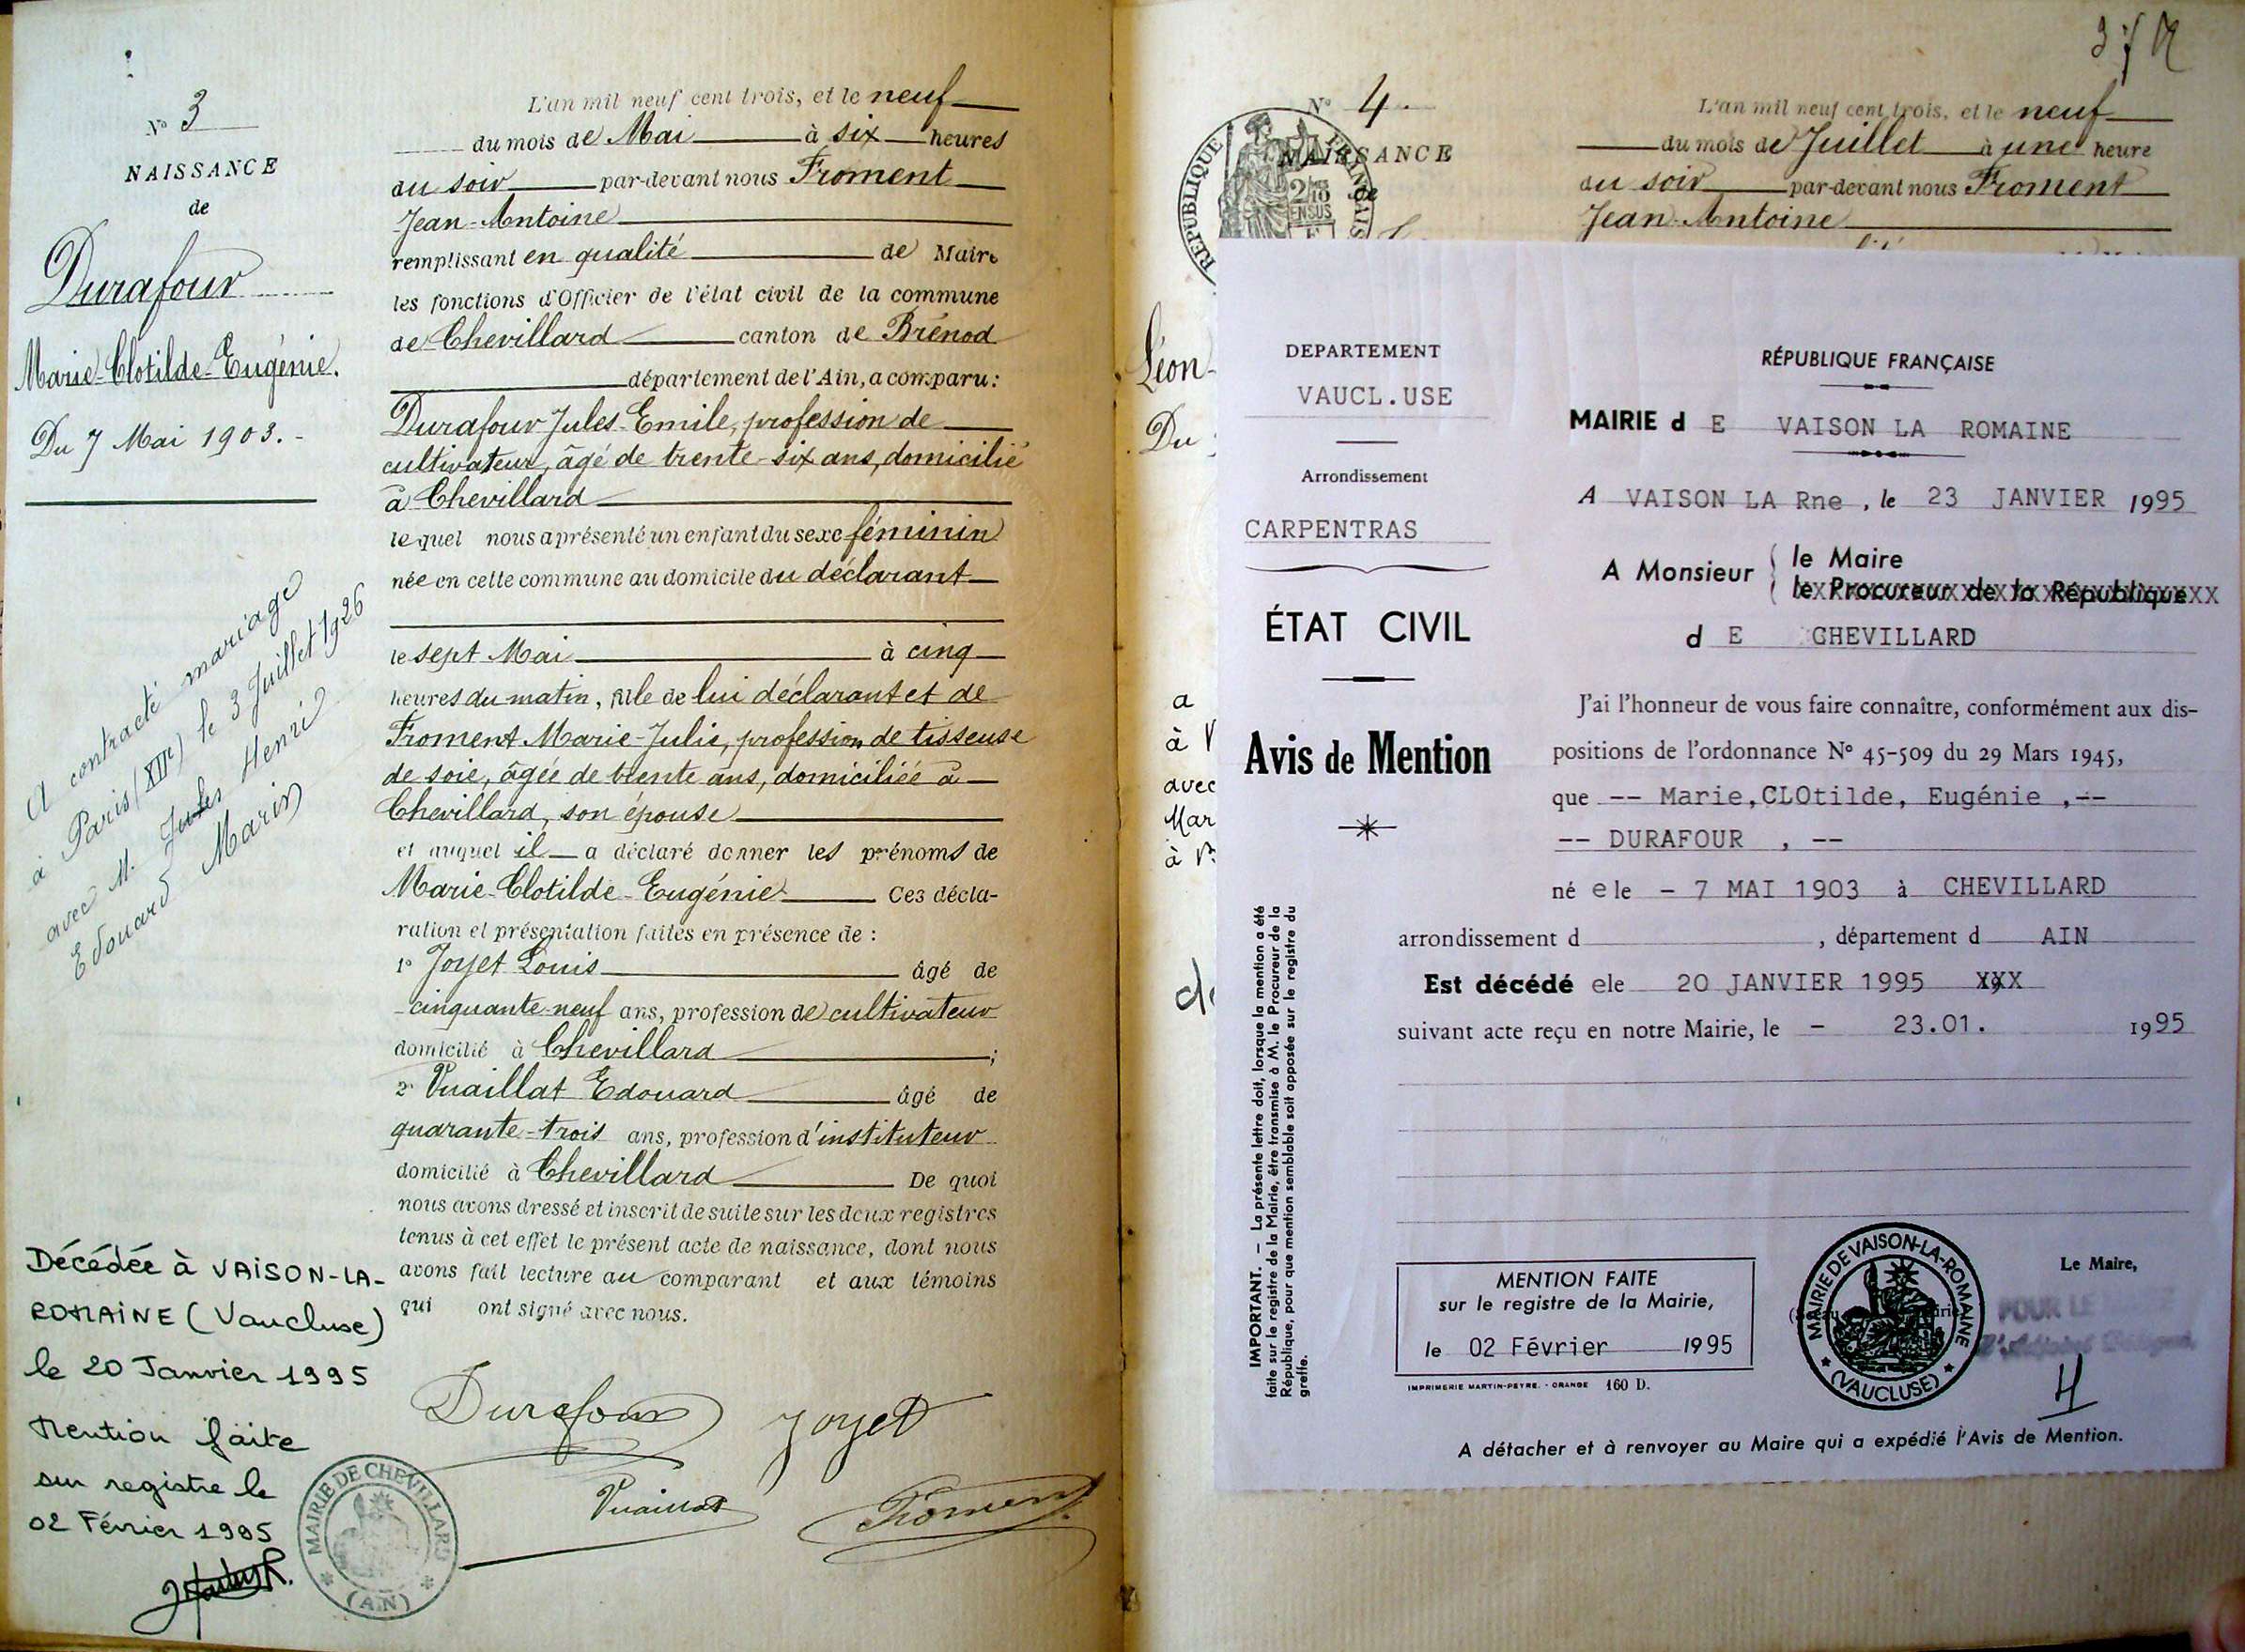 N° 3
NAISSANCE
de
Durafour
Marie-Clotilde-Eugénie.
Du 7 Mai 1903.-
A contracté mariage
à Paris (XIIe) le 3 Juillet 1926
avec M. Jules Henri
Edouard Marin
Décédée à VAISON-LA-
ROMAINE (Vaucluse)
le 20 Janvier 1995
Mention faite
sur registre le
02 Février 1995
MAIRIE DE CHEVILLARD
(AIN)
L'an mil neuf cent trois, et le neuf
du mois de Mai à six heures
du soir par-devant nous Froment
Jean-Antoine
remplissant en qualité de Maire
les fonctions d'Officier de l'état civil de la commune
de Chevillard canton de Brénod
département de l'Ain, a comparu:
Durafour Jules-Emile, profession de
cultivateur, âgé de trente-six ans, domicilié
à Chevillard
lequel nous a présenté un enfant du sexe féminin
née en cette commune au domicile du déclarant
le sept Mai à cinq
heures du matin, fille de lui déclarant et de
Froment Marie-Julie, profession de tisseuse
de soie, âgée de trente ans, domiciliée à
Chevillard, son épouse
et auquel il a déclaré donner les prénoms de
Marie-Clotilde-Eugénie Ces décla-
ration et présentation faites en présence de :
1° Joyet Louis âgé de
cinquante-neuf ans, profession de cultivateur
domicilié à Chevillard ;
2° Vuaillat Edouard âgé de
quarante-trois ans, profession d'instituteur
domicilié à Chevillard De quoi
nous avons dressé et inscrit de suite sur les deux registres
tenus à cet effet le présent acte de naissance, dont nous
avons fait lecture au comparant et aux témoins
qui ont signé avec nous.
Durafour Joyet
Vuaillat Froment
N° 4.
NAISSANCE
de
RÉPUBLIQUE FRANÇAISE
2/10 EN SUS
Léon-
Du
a
à V
avec
Mar
à
L'an mil neuf cent trois, et le neuf
du mois de Juillet à une heure
du soir par-devant nous Froment
Jean-Antoine
DEPARTEMENT
VAUCL.USE
Arrondissement
CARPENTRAS
ÉTAT CIVIL
Avis de Mention
IMPORTANT. — La présente lettre doit, lorsque la mention a été
faite sur le registre de la Mairie, être transmise à M. le Procureur de la
République, pour que mention semblable soit apposée sur le registre du
greffe.
RÉPUBLIQUE FRANÇAISE
MAIRIE d E VAISON LA ROMAINE
A VAISON LA Rne , le 23 JANVIER 1995
A Monsieur le Maire
le Procureur de la République
d E CHEVILLARD
J'ai l'honneur de vous faire connaître, conformément aux dis-
positions de l'ordonnance N° 45-509 du 29 Mars 1945,
que -- Marie,CLOtilde, Eugénie ,--
-- DURAFOUR , --
né e le - 7 MAI 1903 à CHEVILLARD
arrondissement d , département d AIN
Est décédé ele 20 JANVIER 1995 XXX
suivant acte reçu en notre Mairie, le - 23.01. 1995
MENTION FAITE
sur le registre de la Mairie,
le 02 Février 1995
IMPRIMERIE MARTIN-PEYRE. - ORANGE 160 D.
MAIRIE DE VAISON-LA-ROMAINE
(VAUCLUSE)
Le Maire,
POUR LE
A détacher et à renvoyer au Maire qui a expédié l'Avis de Mention.